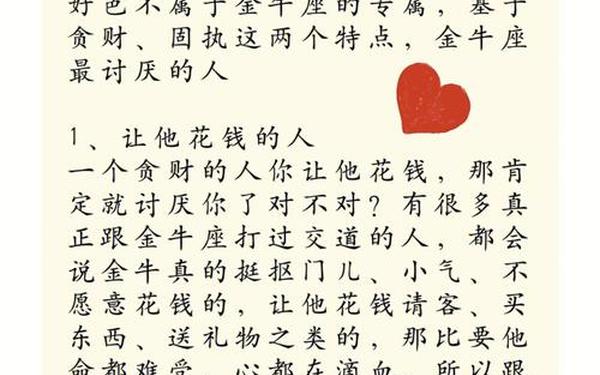 好色不属于金牛座的专属，基于
贪财、固执这两个特点，金牛座
最讨厌的人
1、让他花钱的人
一个贪财的人你让他花钱，那肯
定就讨厌你了对不对？有很多真
正跟金牛座打过交道的人，都会
说金牛真的挺抠门儿、小气、不
愿意花钱的，让他花钱请客、买
东西、送礼物之类的，那比要他
命都难受，心都在滴血，所以跟